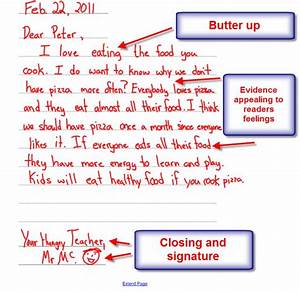 Feb. 22, 2011
Butter up
Dear Peter,
I love eating the food you
cook. I do want to know why we don't
have pizza more often? Everybody loves pizza
and they eat almost all their food. I think
we should have pizza once a month since everyone
likes it. If everyone eats all their food
they have more energy to learn and play.
Kids will eat healthy food if you cook pizza.
Evidence
appealing to
readers
feelings
Your Hungry Teacher,
Mr. MC.
Closing and
signature
Extend Page